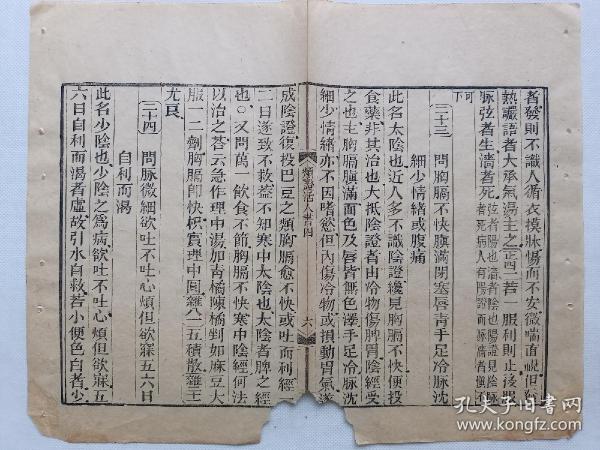 者發則不識人循衣摸牀惕而不安微喘直視但發
熱讝語者大承氣湯主之正四十若一服利則止後服
脉弦者生濇者死
弦者陽也濇者陰也陽證見陰脉
者死病人有陽證而脉濇者慎不
可下
三十三 問胸膈不快䐜滿閉塞唇青手足冷脉沈
細少情緒或腹痛
此名太陰也近人多不識陰證纔見胸膈不快便投
食藥非其治也大抵陰證者由冷物傷脾胃陰經受
之也主胸膈䐜滿面色及唇皆無色澤手足冷脉沈
細少情緒亦不因嗜慾但内傷冷物或損動胃氣遂
類證活人書四
六
成陰證復投巴豆之類胸膈愈不快或吐而利經一
二日遂致不救蓋不知寒中太陰也太陰者脾之經
也又問萬一飲食不節胸膈不快寒中陰經何法
以治之荅云急作理中湯加青橘陳橘剉如麻豆大
服一二劑胸膈即快枳實理中圓雜八二五積散雜五
尤良
三十四 問脉微細欲吐不吐心煩但欲寐五六日
自利而渴
此名少陰也少陰之爲病欲吐不吐心煩但欲寐五
六日自利而渴者虛故引水自救若小便色白者少
孔夫子旧书网